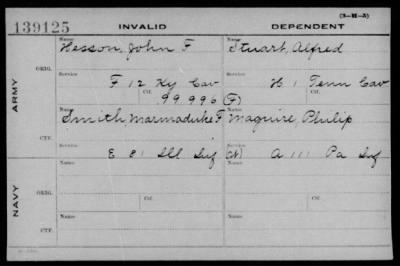 139125 INVALID DEPENDENT (3-II-5)
Name Name
Hesson, John F Stuart, Alfred
ORIG. Service Service
F 12 Ky Cav H 1 Tenn Cav
Ctf. Ctf.
99.996 (F)
ARMY
Name Name
Smith Marmaduke F Maguire, Philip
CTF. Service Service
E 81 Ill Inf (N) A 111 Pa Inf
Name Name
ORIG. Service Ctf. Service Ctf.
NAVY
Name Name
CTF. Service Service